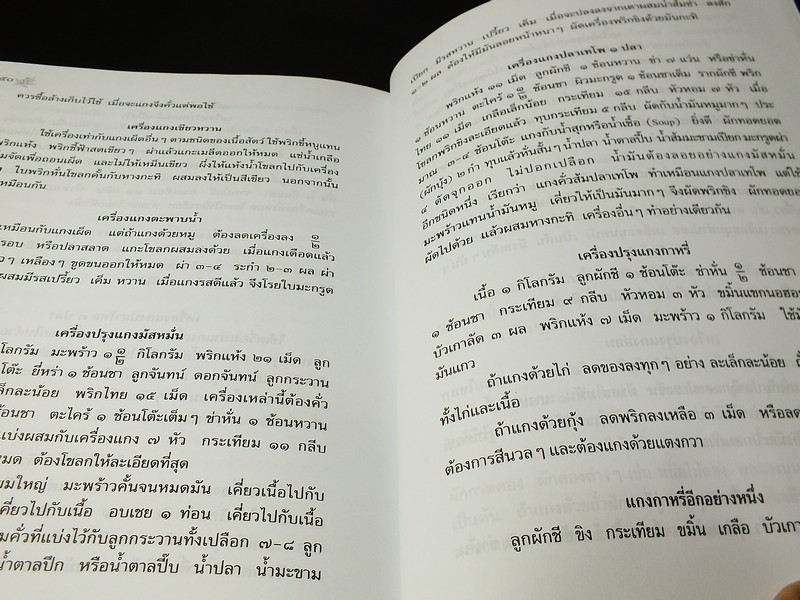 ๕๐
ควรซื้อล้างเก็บไว้ใช้ เมื่อจะแกงจึงคั่วแต่พอใช้
เครื่องแกงเขียวหวาน
ใช้เครื่องเท่ากับแกงเผ็ดอื่นๆ ตามชนิดของเนื้อสัตว์ ใช้พริกชี้หนูแทน
พริกแห้ง พริกชี้ฟ้าสดเขียวๆ ผ่าแล้วแกะเมล็ดออกให้หมด แช่น้ำเกลือ
มจัดเพื่อถอนเผ็ด และไม่ให้เหม็นเขียว ผึ่งให้แห้งน้ำโขลกไปกับเครื่อง
ใบพริกหั่นโขลกคั้นกับหางกะทิ ผสมลงให้เป็นสีเขียว นอกจากนั้น
เหมือนกัน
เครื่องแกงตะพาบน้ำ
เหมือนกับแกงเผ็ด แต่ถ้าแกงด้วยหมู ต้องลดเครื่องลง ๑/๒
รอบ หรือปลาสลาด แกะโขลกผสมลงด้วย เมื่อแกงเดือดแล้ว
ๆ เหลืองๆ ขูดขนออกให้หมด ผ่า ๓-๔ ระกำ ๒-๓ ผล ผ่า
ผสมมีรสเปรี้ยว เค็ม หวาน เมื่อแกงรสดีแล้ว จึงโรยใบมะกรูด
เครื่องปรุงแกงมัสหมั่น
โลกรัม มะพร้าว ๑ ๑/๒ กิโลกรัม พริกแห้ง ๒๑ เม็ด ลูก
โต๊ะ ยี่หร่า ๑ ช้อนชา ลูกจันทน์ ดอกจันทน์ ลูกกระวาน
ล็กละน้อย พริกไทย ๑๕ เม็ด เครื่องเหล่านี้ต้องคั่ว
ช้อนชา ตะไคร้ ๑ ช้อนโต๊ะเต็มๆ ข่าหั่น ๑ ช้อนหวาน
แบ่งผสมกับเครื่องแกง ๗ หัว กระเทียม ๑๑ กลีบ
หมด ต้องโขลกให้ละเอียดที่สุด
ยมใหญ่ มะพร้าวคั้นจนหมดมัน เคี่ยวเนื้อไปกับ
เคี่ยวไปกับเนื้อ อบเชย ๑ ท่อน เคี่ยวไปกับเนื้อ
มคั่วที่แบ่งไว้กับลูกกระวานทั้งเปลือก ๗-๘ ลูก
น้ำตาลปึก หรือน้ำตาลปี๊บ น้ำปลา น้ำมะขาม
เปียก มีรสหวาน เปรี้ยว เค็ม เมื่อจะปลงลงจากเตาผสมน้ำส้มซ่า ลงสัก
๑-๒ ผล ต้องให้มีมันลอยหน้าหนาๆ ผัดเครื่องพริกขิงด้วยมันกะทิ
เครื่องแกงปลาเทโพ ๑ ปลา
พริกแห้ง ๑๑ เม็ด ลูกผักชี ๑ ช้อนหวาน ข่า ๗ แว่น หรือข่าหั่น
๑ ช้อนหวาน ตะไคร้ ๑ ๑/๒ ช้อนชา ผิวมะกรูด ๑ ช้อนชาเต็ม รากผักชี พริก
ไทย ๑๑ เม็ด เกลือเล็กน้อย กระเทียม ๑๕ กลีบ หัวหอม ๗ หัว เมื่อ
โขลกพริกขิงละเอียดแล้ว ทุบกระเทียม ๕ กลีบ ผัดกับน้ำมันหมูมากๆ ประ
มาณ ๓-๔ ช้อนโต๊ะ แกงกับน้ำสุกหรือน้ำเชื้อ (Soup) ยิ่งดี ผักทอดยอด
(ผักบุ้ง) ๒ กำ ทุบแล้วหั่นสั้นๆ น้ำปลา น้ำตาลปี๊บ น้ำส้มมะขามเปียก มะกรูดผ่า
๔ ตัดจุกออก ไม่ปอกเปลือก น้ำมันต้องลอยอย่างแกงมัสหมั่น
อีกชนิดหนึ่ง เรียกว่า แกงคั่วส้มปลาเทโพ ทำเหมือนแกงปลาเทโพ แต่ใช้
มะพร้าวแทนน้ำมันหมู เคี่ยวให้เป็นมันมากๆ จึงผัดพริกขิง ผักทอดยอด
ผัดไปด้วย แล้วผสมหางกะทิ เครื่องอื่นๆ ทำอย่างเดียวกัน
เครื่องปรุงแกงกาหรี่
เนื้อ ๑ กิโลกรัม ลูกผักชี ๑ ช้อนโต๊ะ ข่าหั่น ๑/๒ ช้อนชา
๑ ช้อนชา กระเทียม ๙ กลีบ หัวหอม ๓ หัว ขมิ้นแขกนอฮอ
บัวเกาลัด ๓ ผล พริกแห้ง ๗ เม็ด มะพร้าว ๑ กิโลกรัม ใช้มั
มันแกว
ถ้าแกงด้วยไก่ ลดของลงทุกๆ อย่าง ละเล็กละน้อย
ทั้งไก่และเนื้อ
ถ้าแกงด้วยกุ้ง ลดพริกลงเหลือ ๓ เม็ด หรือลด
ต้องการสีนวลๆ และต้องแกงด้วยแตงกวา
แกงกาหรี่อีกอย่างหนึ่ง
ลูกผักชี ขิง กระเทียม ขมิ้น เกลือ บัวเกา